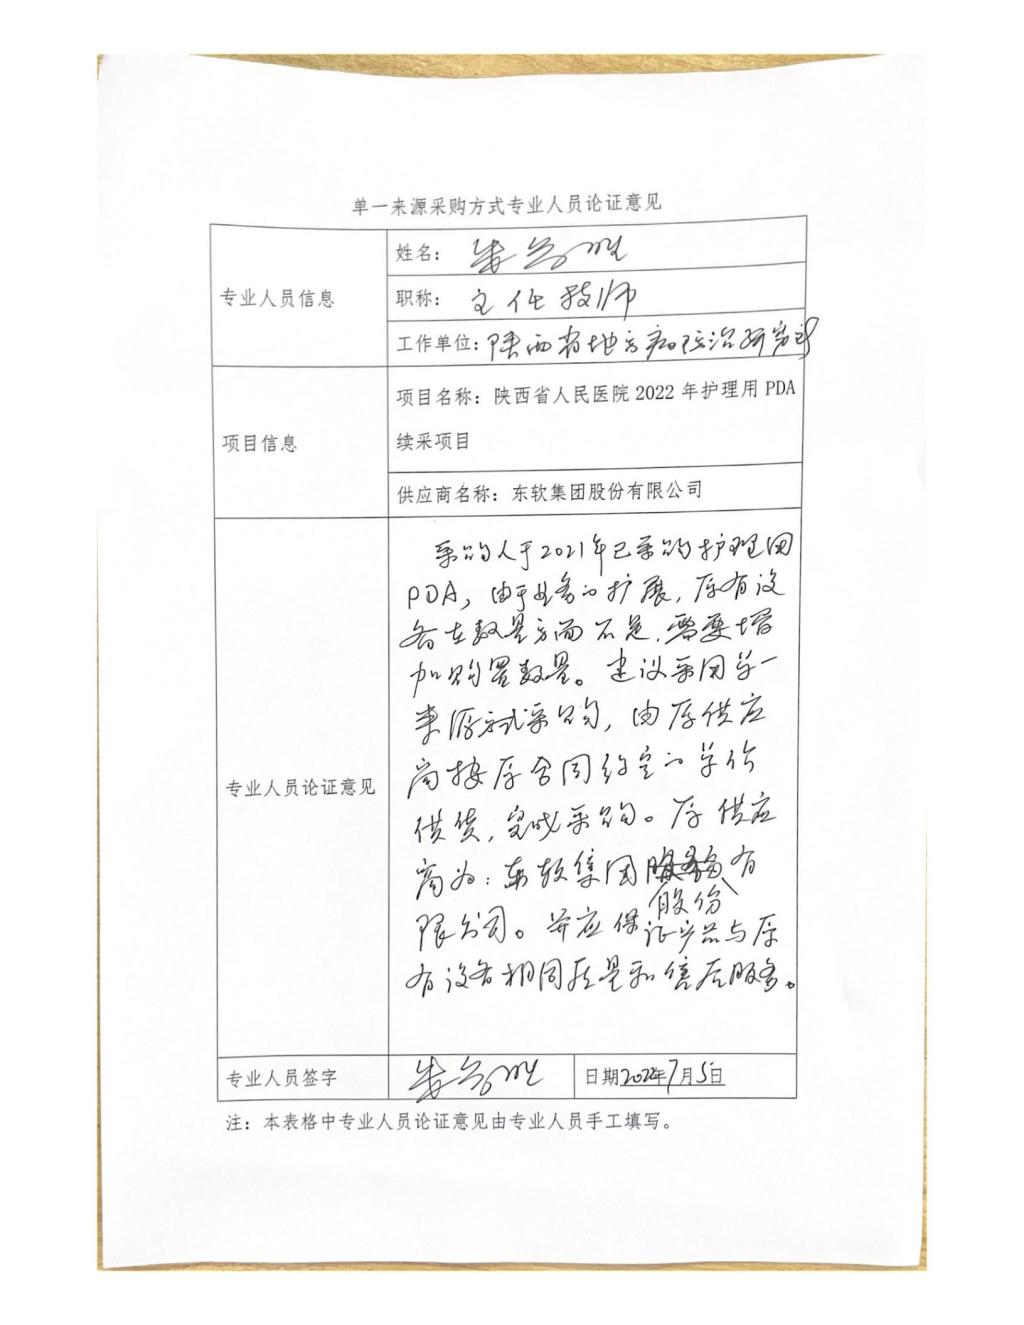 单一来源采购方式专业人员论证意见
专业人员信息
姓名：
职称：主任技师
工作单位：陕西省地方病防治研究所
项目信息
项目名称：陕西省人民医院 2022 年护理用 PDA
续采项目
供应商名称：东软集团股份有限公司
专业人员论证意见
采购人于2021年已采购护理用
PDA，由于业务的扩展，原有设
备在数量方面不足，需要增
加购置数量。建议采用单一
来源方式采购，由原供应
商按原合同约定的单价
供货，完成采购。原供应
商为：东软集团股份有
限公司。并应保证产品与原
有设备相同质量和售后服务。
专业人员签字
日期2022年7月5日
注：本表格中专业人员论证意见由专业人员手工填写。